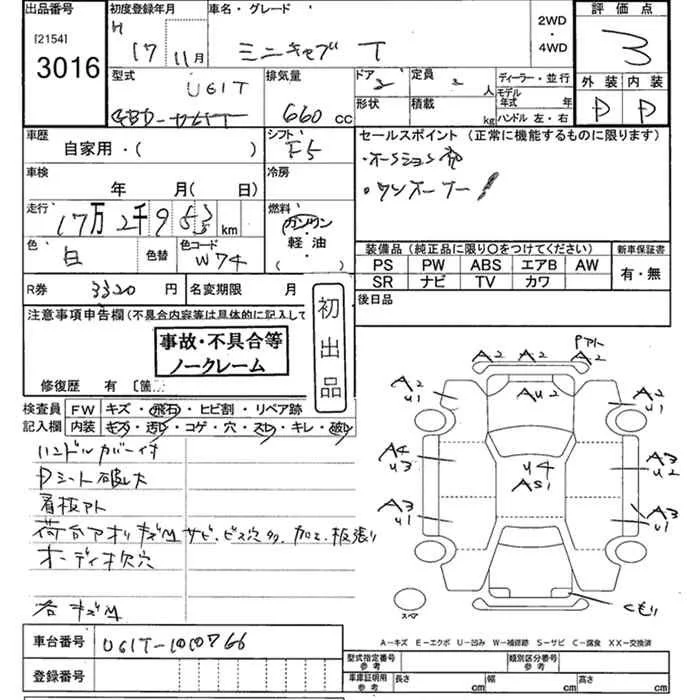 出品番号
[2154]
3016
初度登録年月
H 17 年 11 月
車名・グレード
ミニキャブ T
2WD
・
4WD
評価点
3
外装 内装
D D
型式
U61T
GBD-U61T
排気量
660 cc
ドア 2
定員 2 人
形状
積載 kg
ディーラー・並行
モデル年式 年
ハンドル 左・右
車歴
自家用・( )
シフト
F5
セールスポイント (正常に機能するものに限ります)
・ワンオーナー!
車検
年 月( 日)
冷房
走行
17万2千953 km
燃料
ガソリン
軽油
( )
色
白
色替
色コード
W74
装備品 (純正品に限り○をつけてください)
PS PW ABS エアB AW
SR ナビ TV カワ
新車保証書
有・無
R券 3320 円
名変期限 月
初出品
後日品
注意事項申告欄(不具合内容等は具体的に記入して
事故・不具合等
ノークレーム
修復歴 有 〔箇
検査員 FW キズ・飛石・ヒビ割・リペア跡
記入欄 内装 キズ・汚レ・コゲ・穴・スレ・キレ・破レ
ハンドルカバー付
Dシート破レ大
看板アト
荷台アオリキズM サビ、ビス穴多、加工、板張り
オーディオ欠穴
右キズM
A2 A2 Pアト A2
A2 U1
AU2
A2 U1
A4 U3
U4 AS1
A3 U2
A3 U1
A3 U1
スペア
Cモリ
A－キズ E－エクボ U－凹み W－補修跡 S－サビ C－腐食 XX－交換済
車台番号 U61T-1010766
登録番号
型式指定番号 参考
類別区分番号 参考
車庫証明用 参考
長さ cm
幅 cm
高さ cm